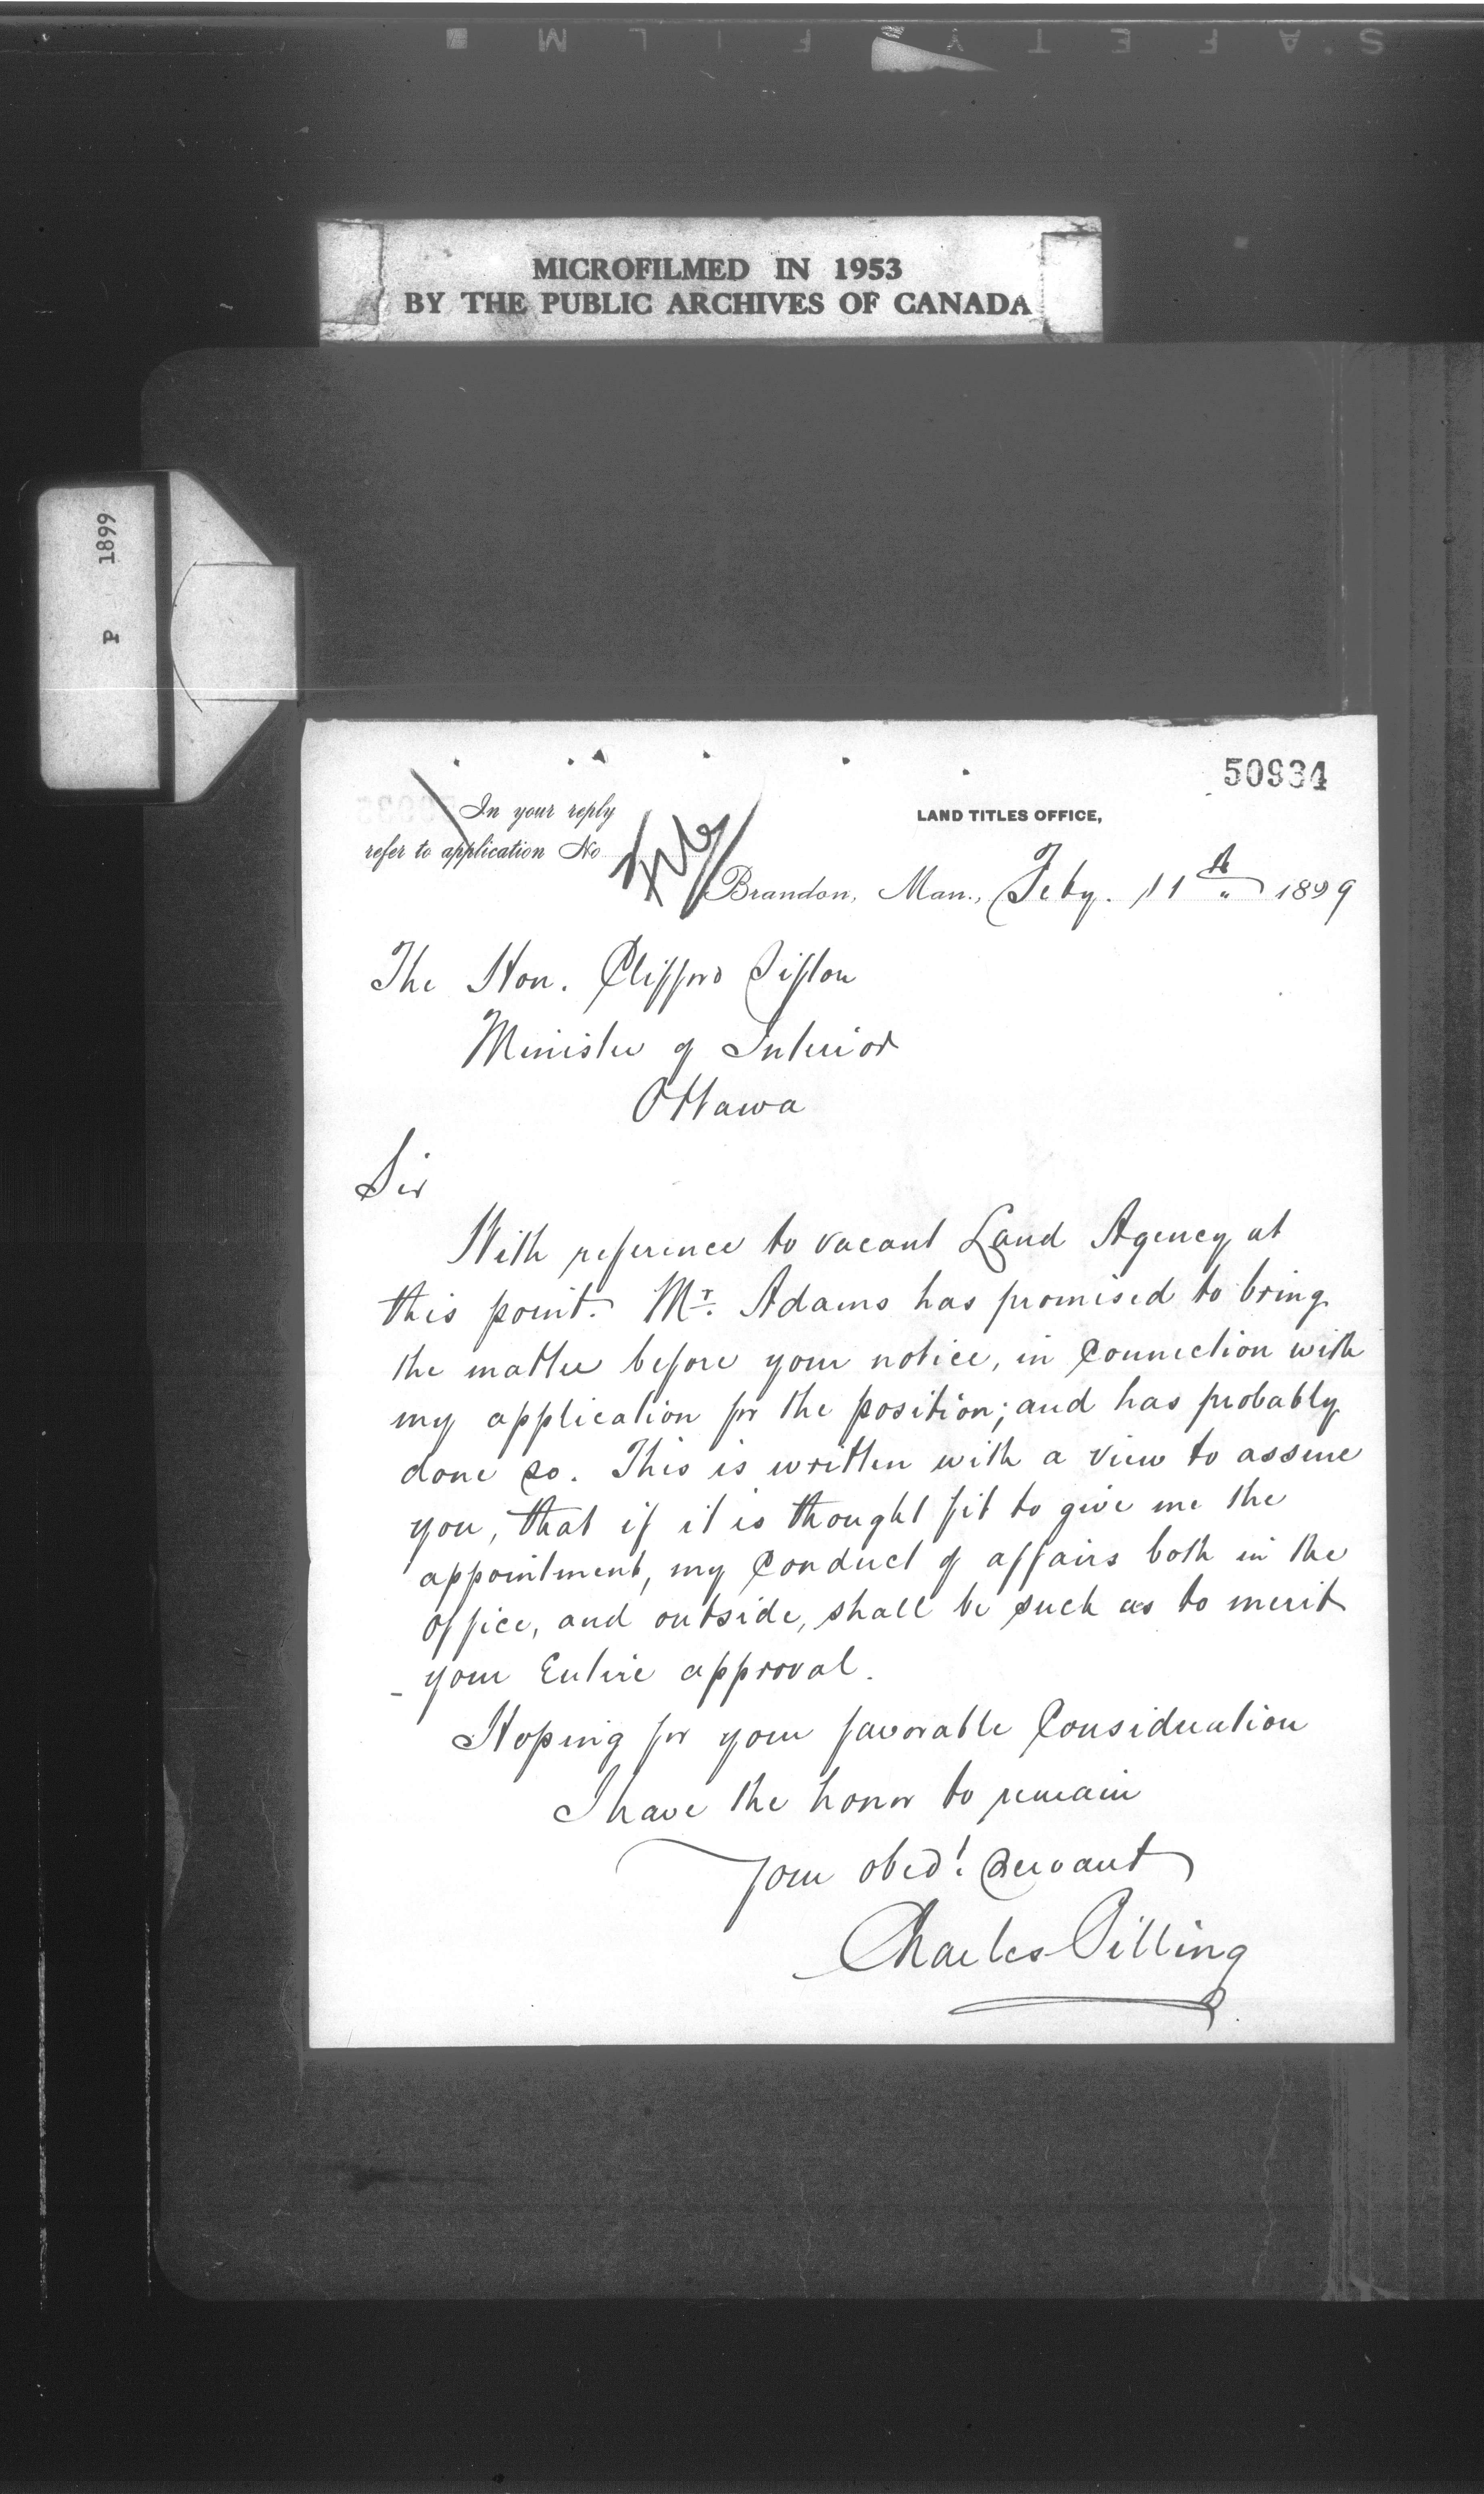 SAFETY FILM
MICROFILMED IN 1953
BY THE PUBLIC ARCHIVES OF CANADA
P 1899
50934
In your reply
refer to application No
LAND TITLES OFFICE,
Brandon, Man., Feby. 11th 1899
The Hon. Clifford Sifton
Minister of Interior
Ottawa
Sir
With reference to vacant Land Agency at
this point. Mr. Adams has promised to bring
the matter before your notice, in Connection with
my application for the position; and has probably
done so. This is written with a view to assure
you, that if it is thought fit to give me the
appointment, my Conduct of affairs both in the
office, and outside, shall be such as to merit
your Entire approval.
Hoping for your favorable Consideration
I have the honor to remain
Your obedt. Servant
Charles Pilling